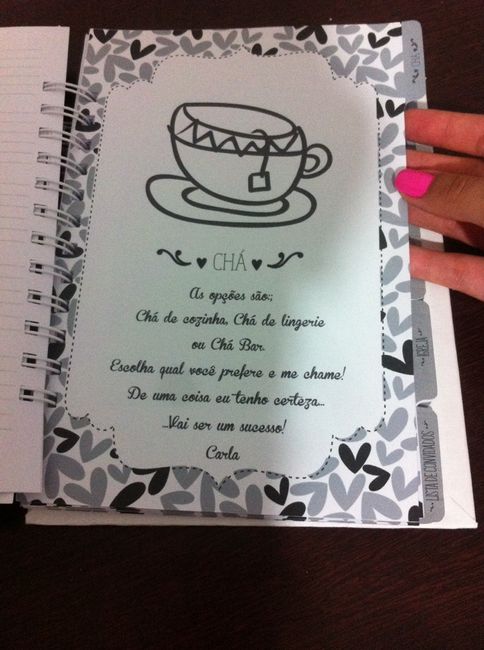 CHÁ
As opções são:;
Chá de cozinha, Chá de lingerie
ou Chá Bar.
Escolha qual você prefere e me chame!
De uma coisa eu tenho certeza...
Vai ser um sucesso!
Carla
CHÁ
IGREJA
LISTA DE CONVIDADOS